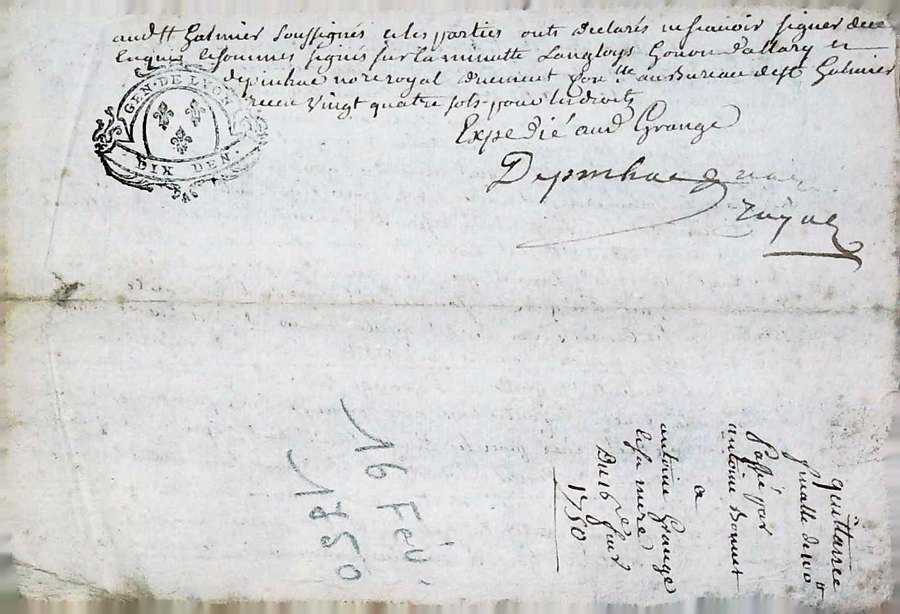 aud St Galmier soussignés et les parties onts declarés ne scavoir signer de ce
Enquis et sommes signés sur la minutte Langloys Gonon Dallary et
Depinhac nore royal duement Con.lle au Bureau de St Galmier
recu vingt quatre sols pour les droits
GEN. DE LYON
DIX DEN.
Expedié aud Grange
Depinhac
royal
quittance
finalle de 100 tt
Passé par
antoine Bonnet
a
antoine Grange
et sa mere
Du 16e fevr
1750
16 Fév.
1750